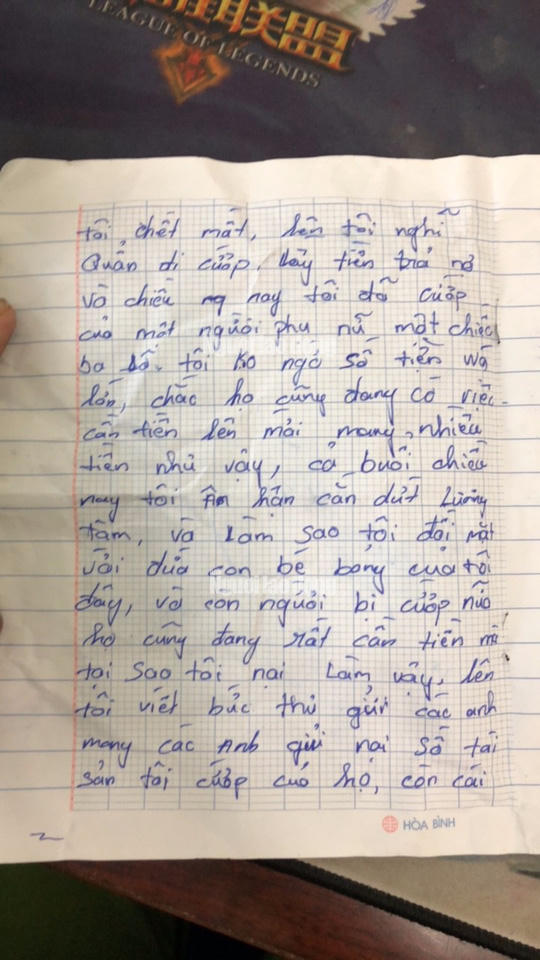 联盟
LEAGUE OF LEGENDS
tôi, chết mất, lên tôi nghĩ
Quẩn đi cướp, lấy tiền trả nợ
và chiều ng nay tôi đã cướp
của một người phụ nữ một chiếc
ba lô. tôi ko ngờ số tiền wá
lớn, chắc họ cũng đang có việc
cần tiền lên mới mang, nhiều
tiền như vậy, cả buổi chiều
nay tôi Ân hận cắn dứt Lương
tâm, và Làm sao tôi đối mặt
với đứa con bé bỏng của tôi
đây, và con người bị cướp nữa
họ cũng đang rất cần tiền mà
tại sao tôi nại Làm vậy, lên
tôi viết bức thư gửi các anh
mong các Anh gửi nại số tài
sản tôi cướp của họ, còn cái
2
HÒA BÌNH